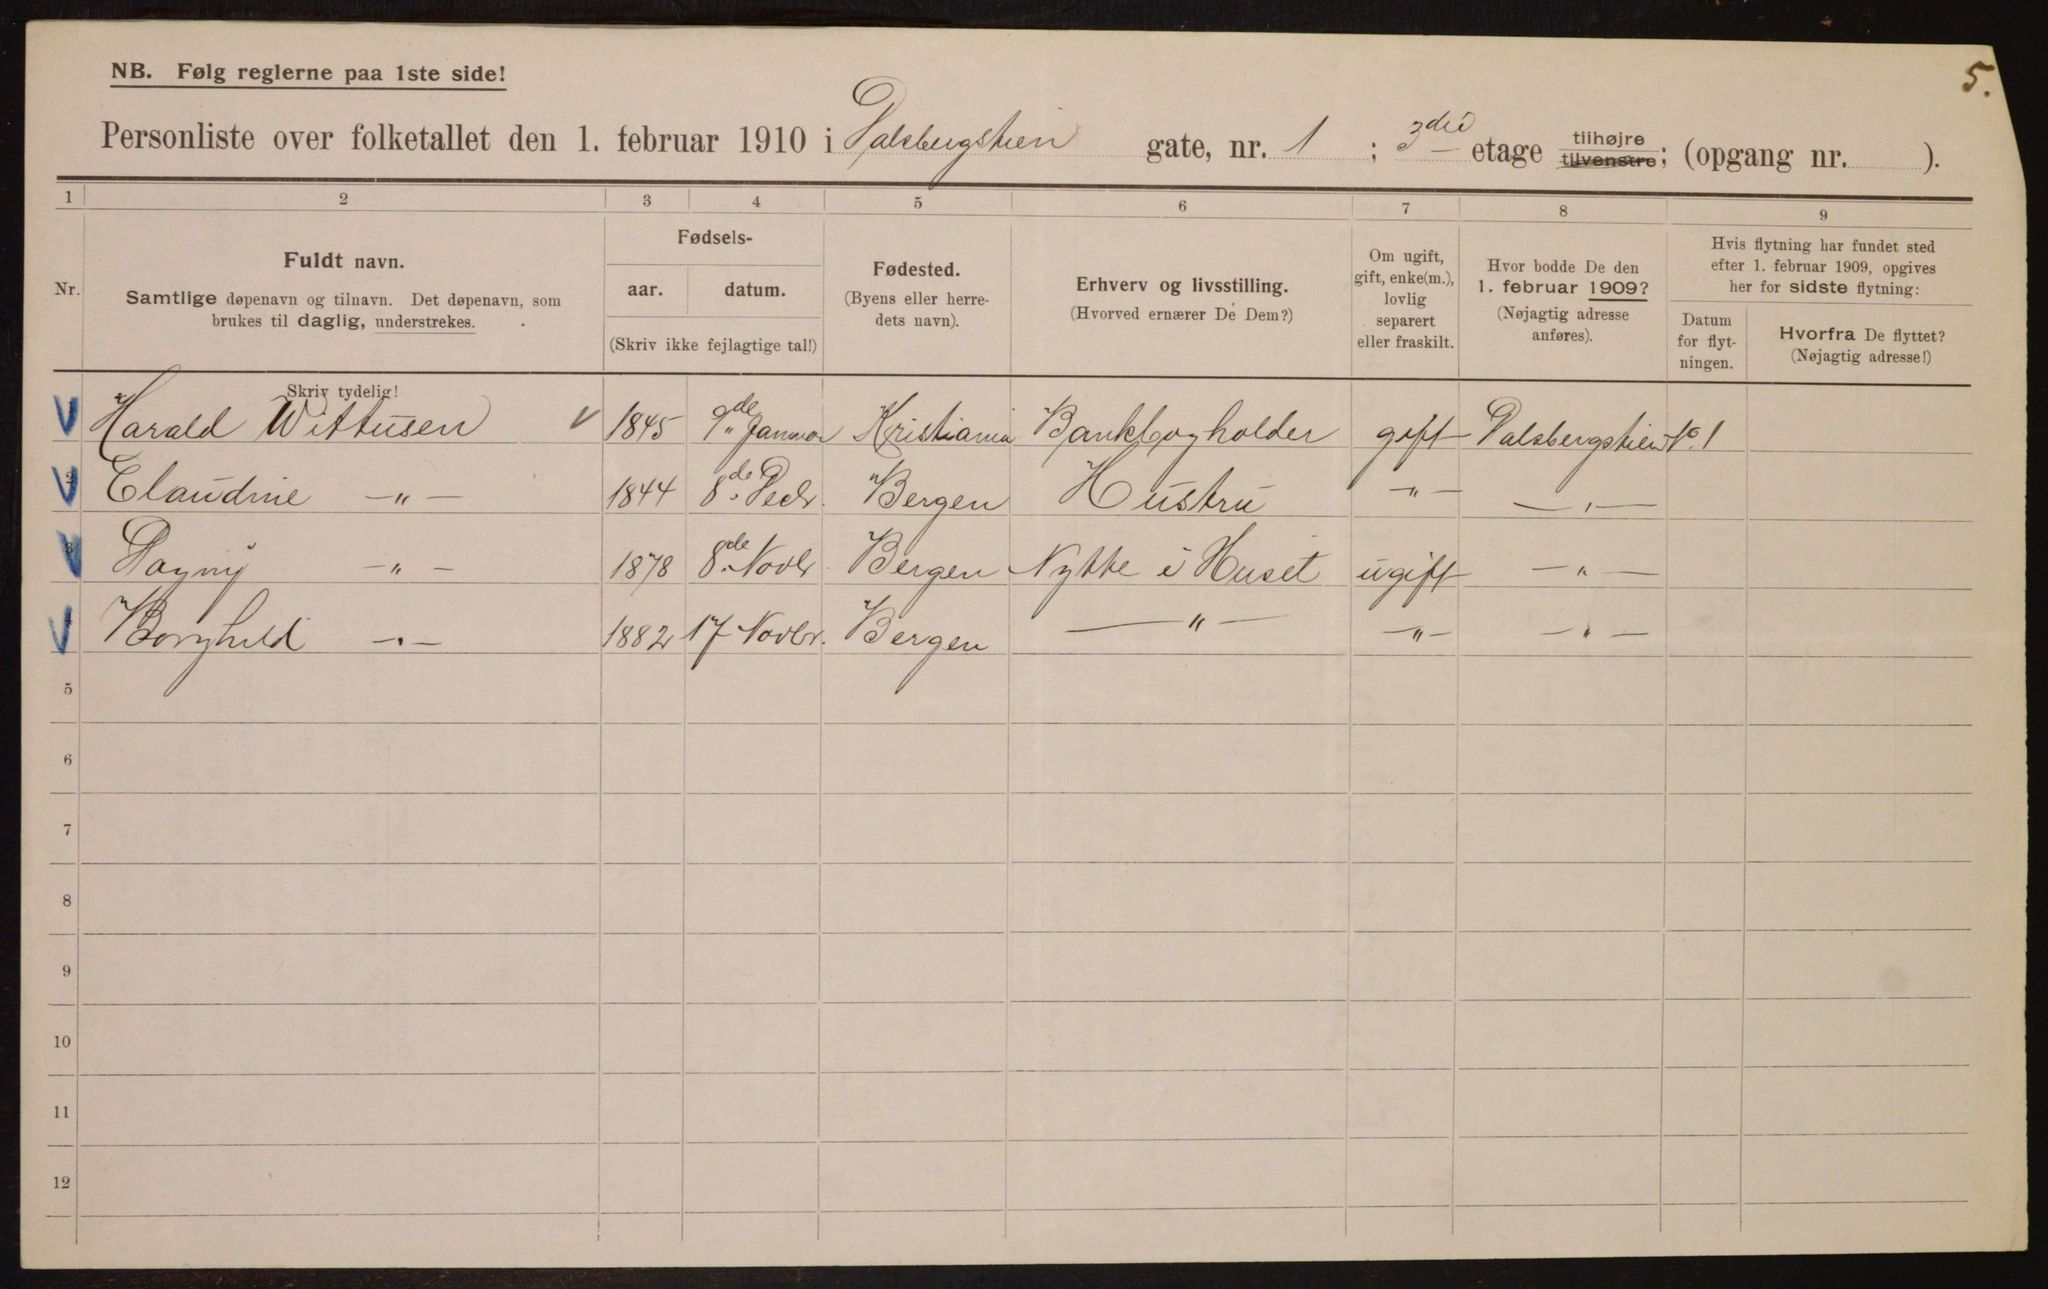 5.
NB. Følg reglerne paa 1ste side!
Personliste over folketallet den 1. februar 1910 i Dalsbergstien gate, nr. 1 ; 3die etage tilhøjre tilvenstre; (opgang nr. ).
1 2 3 4 5 6 7 8 9
Nr.
Fuldt navn.
Samtlige døpenavn og tilnavn. Det døpenavn, som
brukes til daglig, understrekes.
Fødsels-
aar. datum.
(Skriv ikke fejlagtige tal!)
Fødested.
(Byens eller herre-
dets navn).
Erhverv og livsstilling.
(Hvorved ernærer De Dem?)
Om ugift,
gift, enke(m.),
lovlig
separert
eller fraskilt.
Hvor bodde De den
1. februar 1909?
(Nøjagtig adresse
anføres).
Hvis flytning har fundet sted
efter 1. februar 1909, opgives
her for sidste flytning:
Datum
for flyt-
ningen.
Hvorfra De flyttet?
(Nøjagtig adresse!)
Skriv tydelig!
1 Harald Wittusen 1845 9de Januar Kristiania Bankbogholder gift Dalsbergstien No. 1
2 Claudine —〃— 1844 8de Decbr. Bergen Hustru —〃— —〃—
3 Dagny —〃— 1878 8de Novbr. Bergen Nytte i Huset ugift —〃—
4 Borghild —〃— 1882 17 Novbr. Bergen —〃— —〃— —〃—
5
6
7
8
9
10
11
12